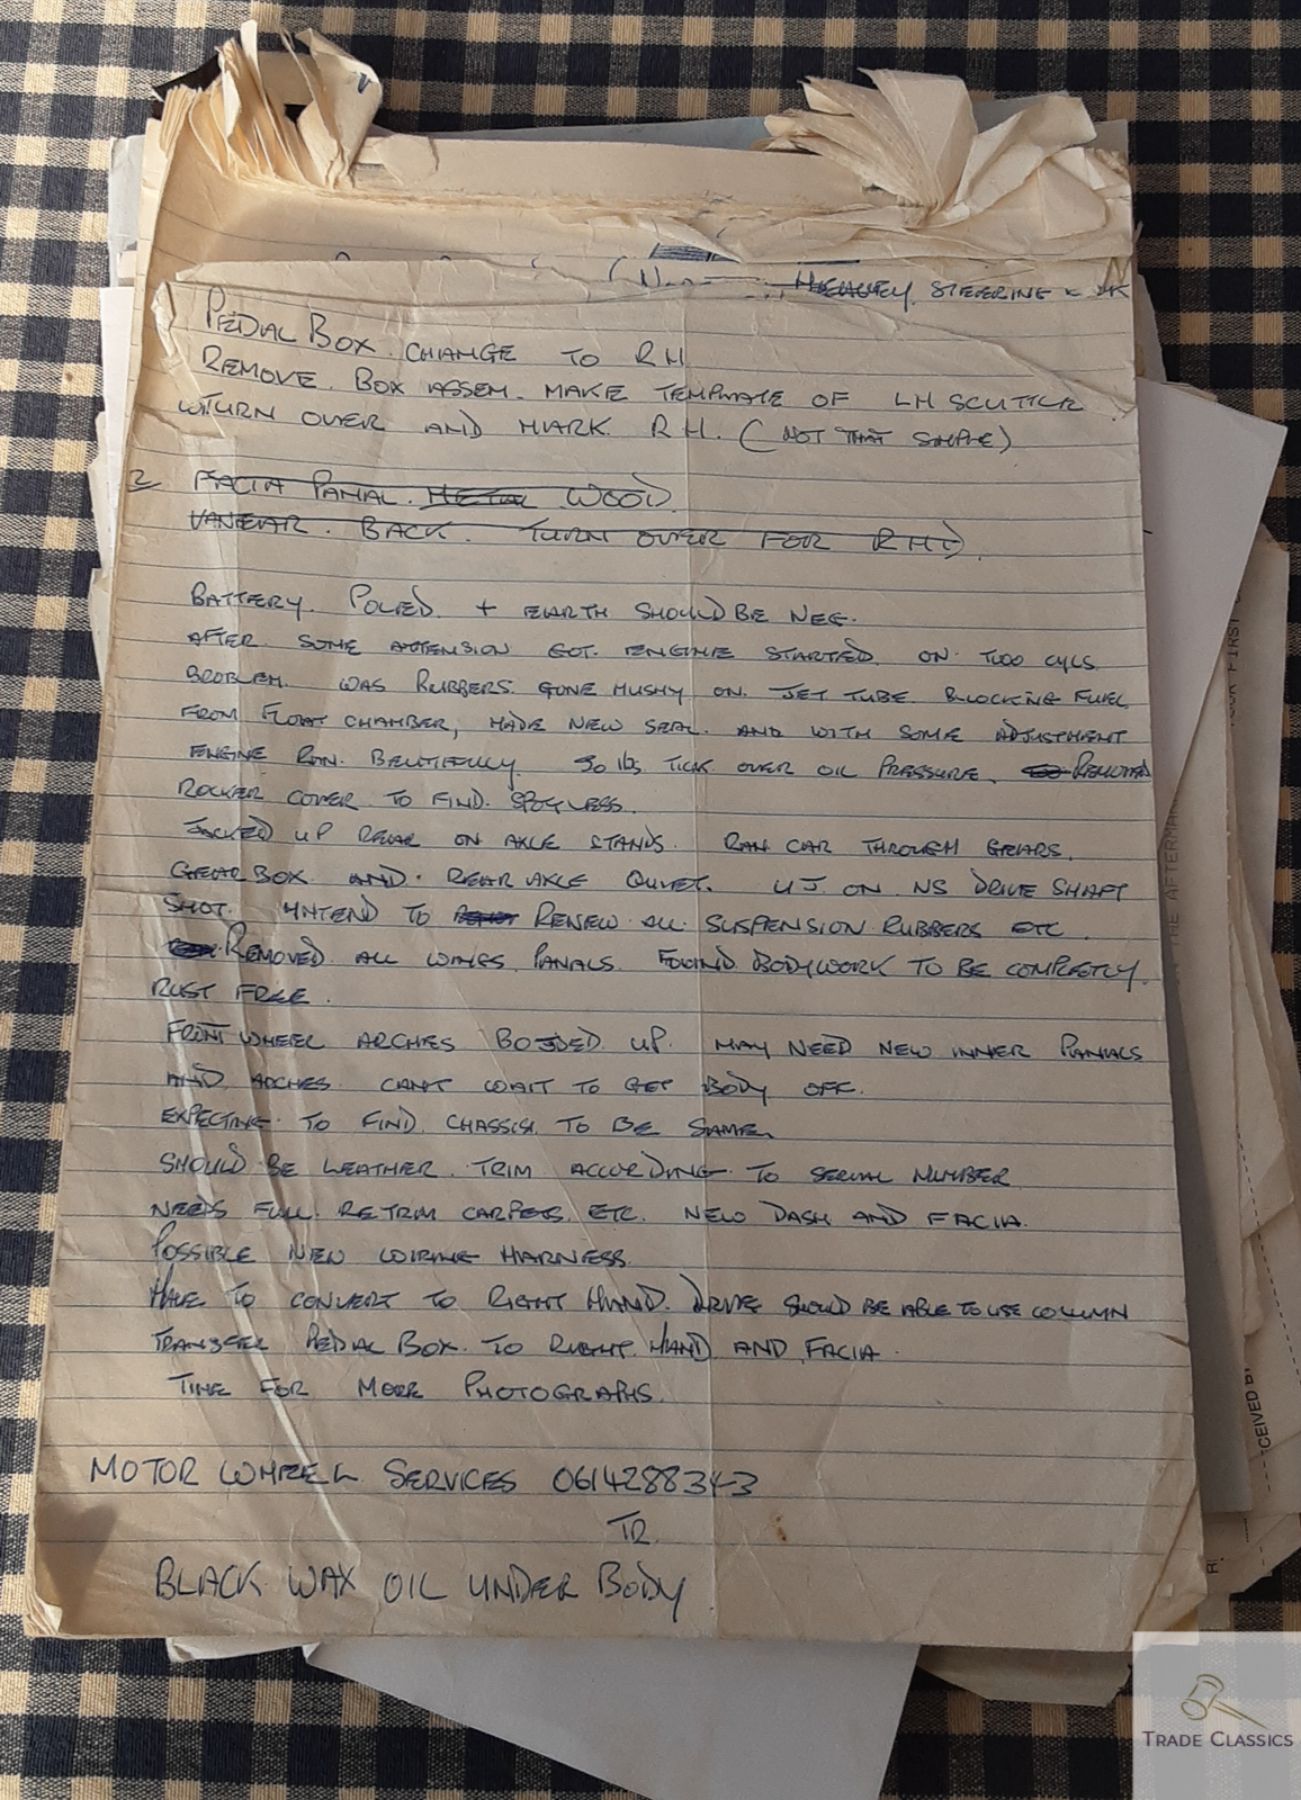 HEAVEY STEERING
PEDIAL BOX CHANGE TO RH
REMOVE. BOX ASSEM. MAKE TEMPLATE OF LH SCUTTLE
TURN OVER AND MARK RH. (NOT THAT SIMPLE)
2 FACIA PANAL. METAL WOOD.
VANEEAR. BACK. TURN OVER FOR RHD.
BATTERY. POLED. + EARTH SHOULD BE NEG.
AFTER SOME ATTENSION GOT. ENGINE STARTED. ON TWO CYLS.
PROBLEM. WAS RUBBERS. GONE MUSHY ON JET TUBE BLOCKING FUEL
FROM FLOAT CHAMBER, MADE NEW SEAL. AND WITH SOME ADJUSTMENT
ENGINE RAN. BEUTIFULLY. 50 lbs TICK OVER OIL PRESSURE. REMOVED
ROCKER COVER TO FIND. SPOTLESS.
JACKED UP REAR ON AXLE STANDS. RAN CAR THROUGH GEARS.
GEARBOX AND. REAR AXLE QUIET. UJ ON NS DRIVE SHAFT
SHOT. INTEND TO RENEW ALL SUSPENSION RUBBERS ETC.
REMOVED ALL WINGS PANALS. FOUND BODYWORK TO BE COMPLETLY.
RUST FREE.
FRONT WHEEL ARCHES BODDED UP. MAY NEED NEW INNER PANALS
AND ARCHES. CANT WAIT TO GET BODY OFF.
EXPECTING TO FIND. CHASSIS TO BE SAME.
SHOULD BE LEATHER. TRIM ACCORDING TO SERIAL NUMBER
NEEDS FULL RETRIM CARPETS. ETC. NEW DASH AND FACIA.
POSSIBLE NEW WIRING HARNESS.
HAVE TO CONVERT TO RIGHT HAND. DRIVE SHOULD BE ABLE TO USE COLUMN
TRANSFER PEDIAL BOX. TO RIGHT HAND AND FACIA.
TIME FOR MORE PHOTOGRAPHS.
MOTOR WHEEL SERVICES 0614288343
TR
BLACK WAX OIL UNDER BODY
CEIVED BY
TRADE CLASSICS